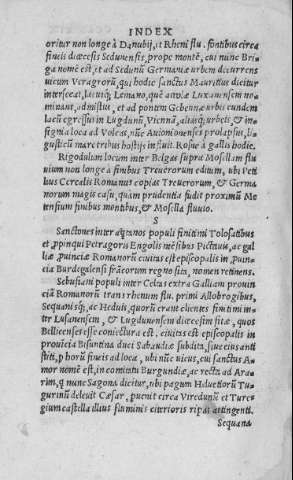 INDEX
oritur non longè à Danubij, et Rheni flu. fontibus circa
fineis diœcesis Sedunensis, prope montē, cui nunc Bri-
ga nomē est, et ad Sedunū Germaniæ urbem decurrens
uicum Veragrorū, qui hodie sanctus Mauritius dicitur
intersecat, lacuiq; Lemano, quē ætas Luxanensem no-
minant, admistus, et ad pontum Gebennæ urbis eundem
lacū egressus in Lugdunū, Viennā, aliasq; urbeis, & in-
signia loca ad Volcas, nūc Auionionenses prolapsus, li-
gustici maretribus hostijs in fluit. Rosne à gallis hodie.
Rigodulum locum inter Belgas supra Mosellam flu
uium non longe à finibus Treuerorum editum, ubi Peti
lius Cerealis Romanus copias Treuerorum, & Germa
norum magis casu, quàm prudentia fudit proximū Me
tensium finibus montibus, & Mosella fluuio.
S
Sanctones inter aq̃tanos populi finitimi Tolosatibus
et ꝓpinqui Petragoris Engolismēsibus Pictauis, ac gal
liæ ꝓuinciæ Romanorū ciuitas est episcopalis in ꝓuin
cia Burdegalensi frācorum regno sita, nomen retinens.
Sebusiani populi inter Celtas extra Galliam prouin
ciā Romanorū trans rhenum flu. primi Allobrogibus,
Sequanisq́;, ac Heduis, quorū erant clientes finitimi in-
ter Lusanensem, & Lugdunensem diœcesim sitæ, quos
Bellicenses esse coniectura est, ciuitas est episcopalis in
prouĩcia Bisuntina duci Sabaudiæ subdita, siue eius anti
stiti, ꝓ horū fineis ad loca, ubi nũc uicus, cui sanctus A-
mor nomē est, in comitatu Burgundiæ, ac recta ad Ara-
rim, q̃ nunc Sagona dicitur, ubi pagum Heluetiorū Tu-
gurinū deleuit Cæsar, ꝓuenit circa Viredunū et Turce
gium castella illius fluminis citerioris ripā attingenti.
Sequana